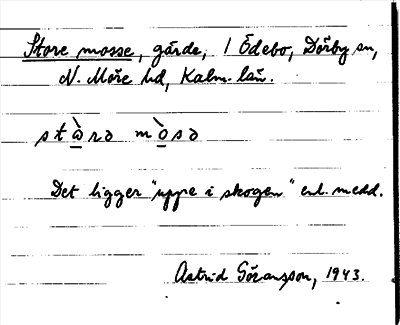 Store mosse, gärde, 1 Ödebo, Dörby sn,
N. Möre hd, Kalm. län.
Det ligger "uppe i skogen" enl. medd.
Astrid Göransson, 1943.